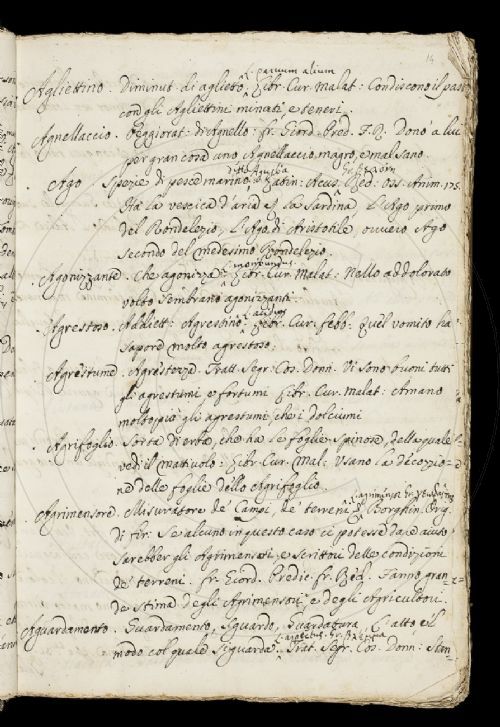 14
L. parvum alium
Agliettino. Diminut. di aglietto. Libr. Cur. Malat: Condiscono il pan
con gli Agliettini minuti, e teneri.
Agnellaccio. Peggiorat: di Agnello. fr. Giord. Pred. F.R. Donò a lui
per gran cosa uno Agnellaccio magro, e mal sano.
Ago Spezie di pesce marino. Latin: Acus. Red. Oss. Anim. 175.
Ha la vescica d'aria la Sardina, l'Ago primo
del Rondelezio, l'Ago di Aristotile, ovvero Ago
secondo del medesimo Rondelezio.
L. moribundus
Agonizzante. Che agonizza. Libr. Cur. Malat: Nello addolorato
volto sembrano agonizzanti.
Agrestoso. Addiett: Agrestino. Libr. Cur. febb. Quel vomito ha
sapore molto agrestoso.
Agrestume. Agrestezza. Tratt. Segr. Cos. Donn. Vi sono buoni tutti
gli agrestumi, e fortumi. Libr. Cur. Malat: Amano
molto più gli agrestumi che i dolciumi.
Agrifoglio. Sorta di erba, che ha le foglie spinose, della quale
vedi il Mattiuolo. Libr. Cur. Mal: Usano la decozzio-
ne delle foglie dello Agrifoglio.
Agrimensore. Misuratore de' Campi, de' terreni. Borghin. Orig.
di fir. Se alcuno in questo caso ci potesse dare aiuto
sarebber gli Agrimensori, e scrittori delle condizioni
de' terreni. fr. Giord. Predic. fr. Red. Fanno gran-
de stima degli Agrimensori, e degli Agricultori.
Aguardamento. Guardamento, Sguardo, Guardatura, L'atto, e il
modo col quale si guarda. Trat. Segr. Cos. Donn: Stan-